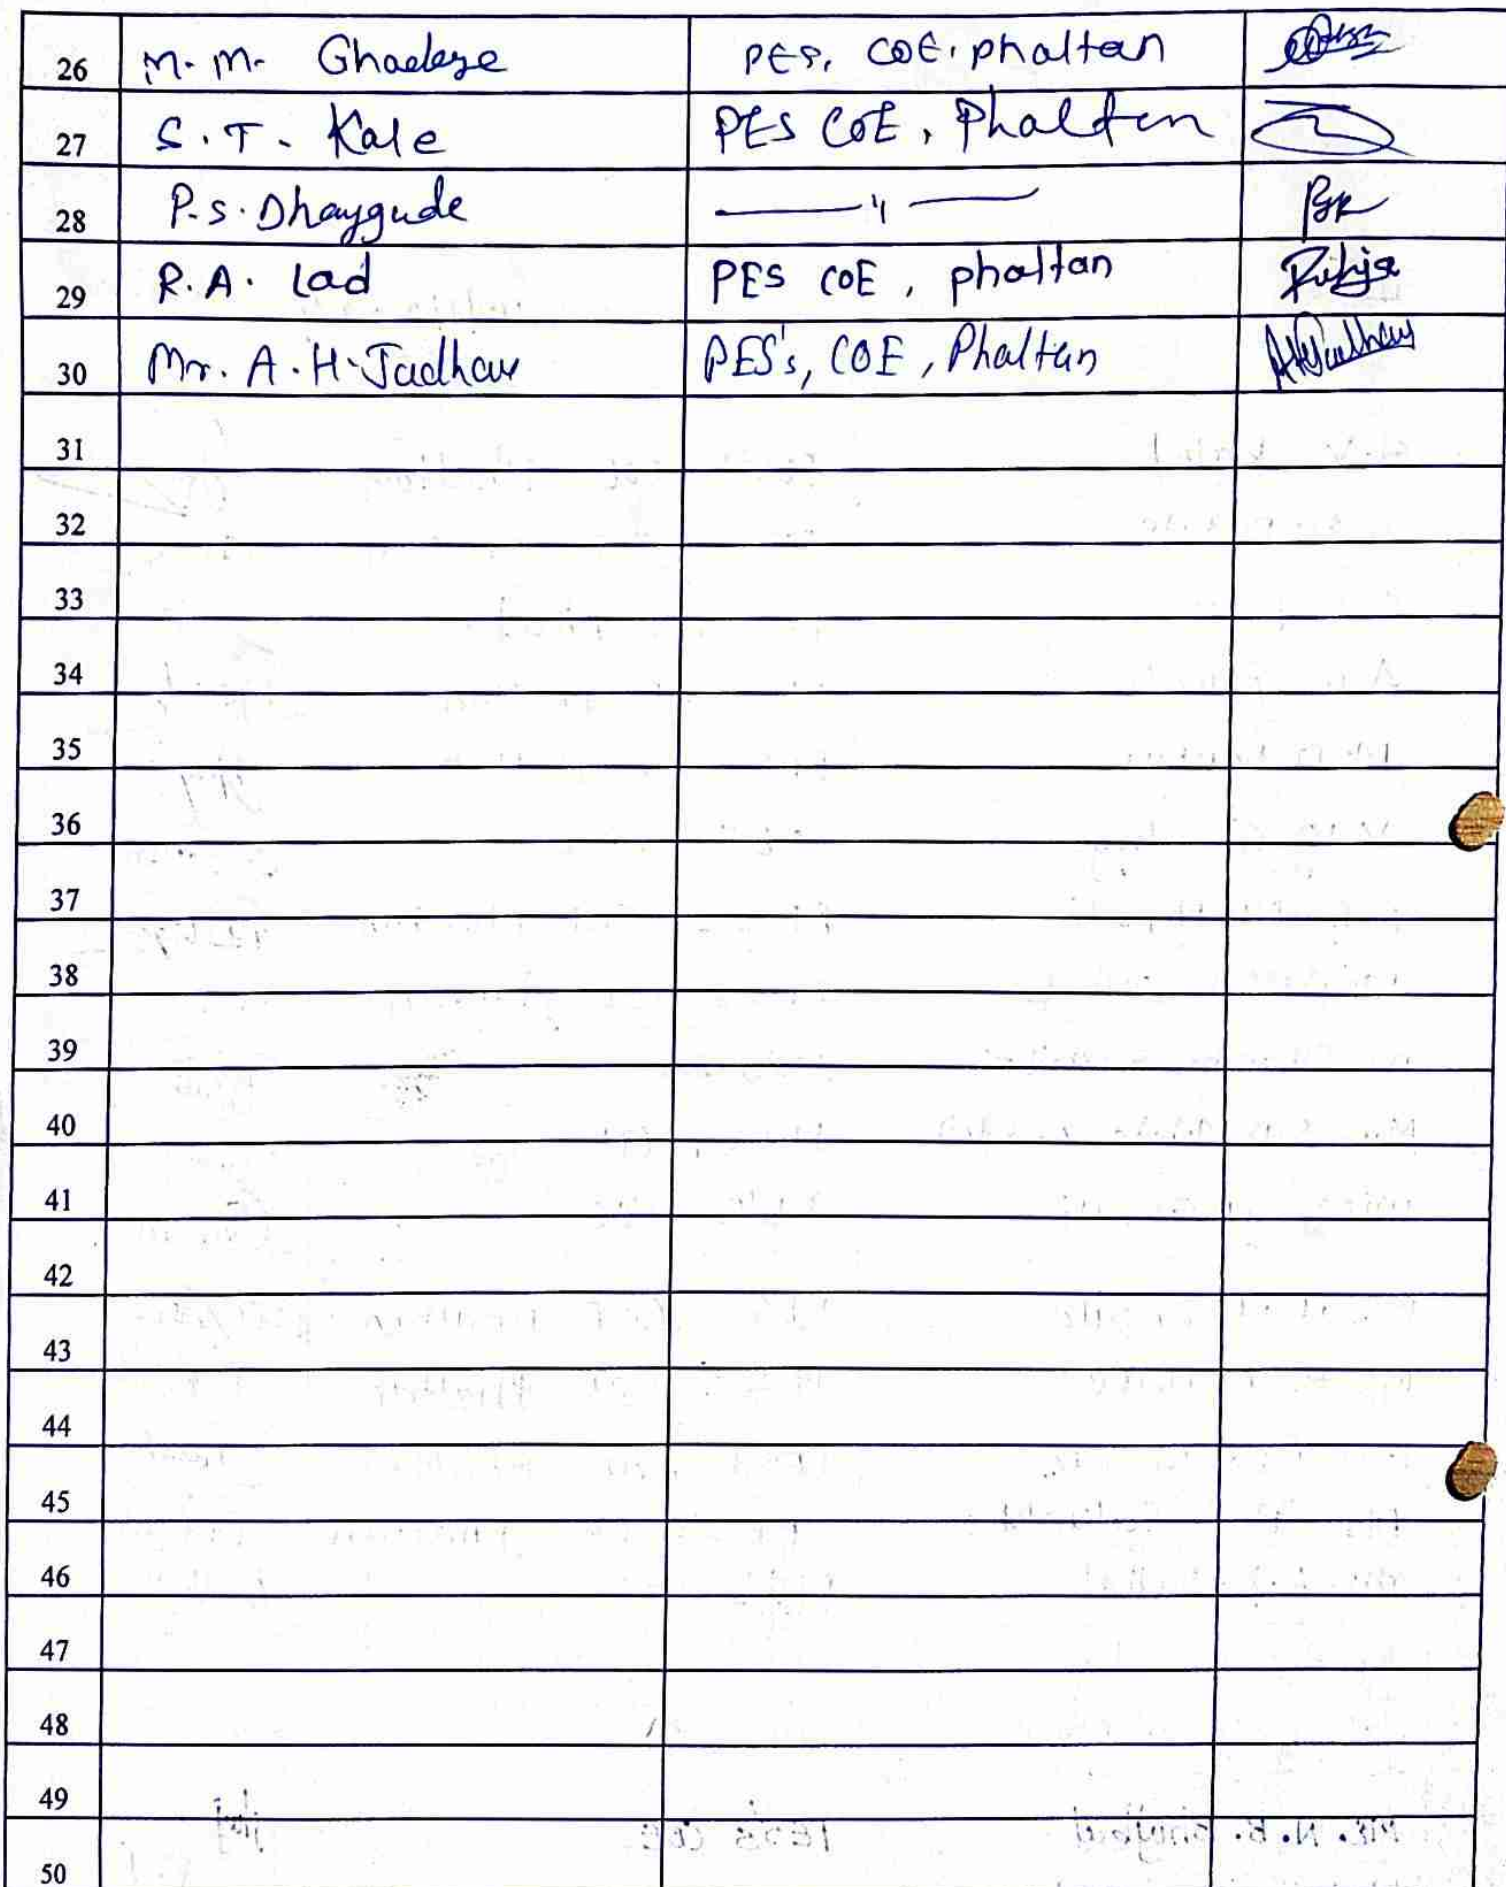 26 M. M. PES, COE, phaltan
27 S. T. Kale PES COE, Phaltan
28 P. S. Dhaygude — " —
29 R. A. Lad PES COE, phaltan
30 Mr. A. H. Jadhav PES's, COE, Phaltan
31
32
33
34
35
36
37
38
39
40
41
42
43
44
45
46
47
48
49
50